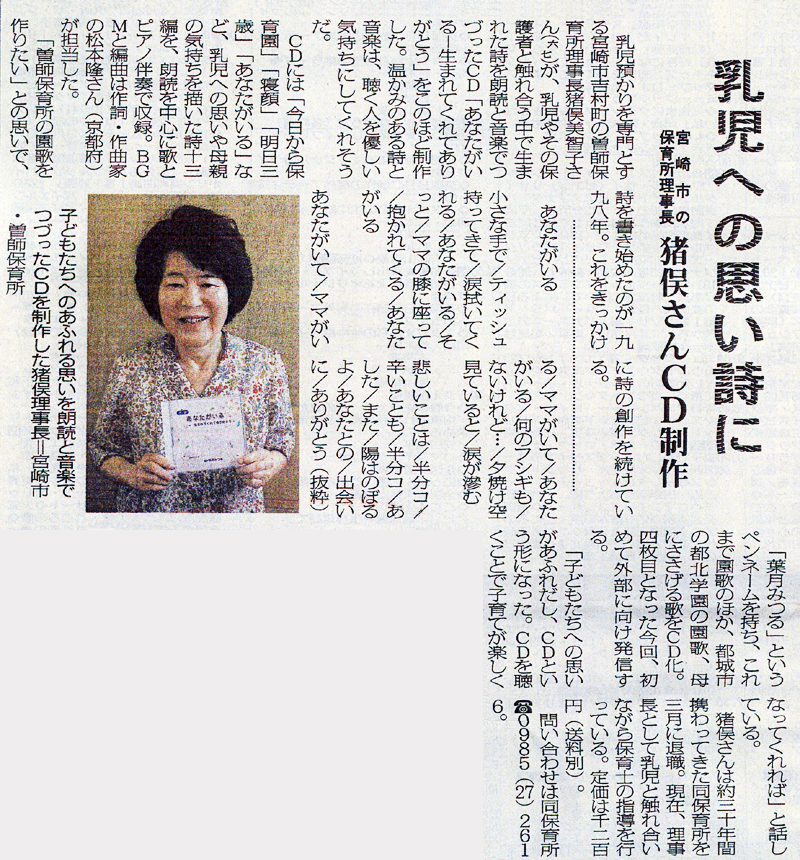 乳児への思い詩に
宮崎市の
保育所理事長
猪俣さんCD制作
乳児預かりを専門とす
る宮崎市吉村町の曽師保
育所理事長猪俣美智子さ
んが、乳児やその保
護者と触れ合う中で生ま
れた詩を朗読と音楽でつ
づったCD「あなたがい
る―生まれてくれてあり
がとう」をこのほど制作
した。温かみのある詩と
音楽は、聴く人を優しい
気持ちにしてくれそう
だ。
CDには「今日から保
育園」「寝顔」「明日三
歳」「あなたがいる」な
ど、乳児への思いや母親
の気持ちを描いた詩十三
編を、朗読を中心に歌と
ピアノ伴奏で収録。BG
Mと編曲は作詞・作曲家
の松本隆さん(京都府)
が担当した。
「曽師保育所の園歌を
作りたい」との思いで、
詩を書き始めたのが一九
九八年。これをきっかけ
に詩の創作を続けてい
る。
あなたがいる
小さな手で/ティッシュ
持ってきて/涙拭いてく
れる/あなたがいる/そ
っと/ママの膝に座って
/抱かれてくる/あなた
がいる
あなたがいて/ママがい
る/ママがいて/あなた
がいる/何のフシギも/
ないけれど…/夕焼け空
見ていると/涙が滲む
悲しいことは/半分コ/
辛いことも/半分コ/あ
した/また/陽はのぼる
よ/あなたとの/出会い
に/ありがとう(抜粋)
あなたがいる
子どもたちへのあふれる思いを朗読と音楽で
つづったCDを制作した猪俣理事長=宮崎市
・曽師保育所
「葉月みつる」という
ペンネームを持ち、これ
まで園歌のほか、都城市
の都北学園の園歌、母
にささげる歌をCD化。
四枚目となった今回、初
めて外部に向け発信す
る。
「子どもたちへの思い
があふれだし、CDとい
う形になった。CDを聴
くことで子育てが楽しく
なってくれれば」と話し
ている。
猪俣さんは約三十年間
携わってきた同保育所を
三月に退職。現在、理事
長として乳児と触れ合い
ながら保育士の指導を行
っている。定価は千二百
円(送料別)。
問い合わせは同保育所
☎0985(27)261
6。